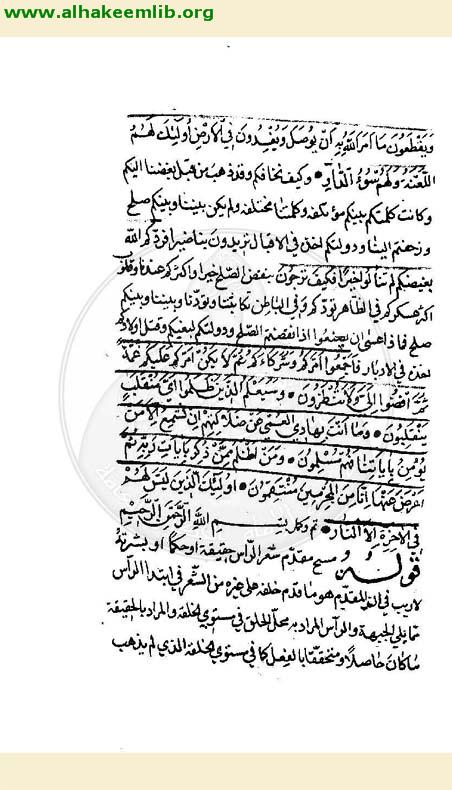 www.alhakeemlib.org
ويقطعون ما امر الله به ان يوصل ويفسدون في الارض اولئك لهم
اللعنة ولهم سوء الدار وكيف نخافكم وقد ذهب من قبل بعضنا اليكم
وكانت كلمتكم بينكم مؤتلفة وكلمتنا مختلفة ولم يكن بيننا وبينكم صلح
وزحفتم الينا ودولتكم اذن في الاقبال تريدون بنا ضيرا فردكم الله
بغيضكم لم تنالوا خيرا فكيف ترجون بنقض الصلح خيرا واكثركم عندنا وقلوب
اكثر عسكركم في الظاهر تودكم وفي الباطن كاتبتنا وتودنا وبيننا وبينكم
صلح فماذا عسى ان يجمعوا اذا نقضتم الصلح ودولتكم لبغيكم وقتل اولادكم
اذن في الادبار فاجمعوا امركم وشركاءكم ثم لا يكن امركم عليكم غمة
ثم اقضوا الي ولا تنظرون وسيعلم الذين ظلموا اي منقلب
ينقلبون وما انت بهادي العمي عن ضلالتهم ان تسمع الا من
يؤمن باياتنا فهم مسلمون ومن اظلم ممن ذكر بايات ربه ثم
اعرض عنها انا من المجرمين منتقمون اولئك الذين ليس لهم
في الاخرة الا النار تم وكمل بسم الله الرحمن الرحيم
قوله ومسح مقدم شعر الراس حقيقة او حكما او بشرته
لا ريب في ان المقدم هو ما قدم خلقه على غيره من الشعر في ابتدا الراس
مما يلي الجبهة والراس المراد به محل الحلق في مستوي الخلقة والمراد بالحقيقة
ما كان حاصلا ومتحققا بالفعل كما في مستوي الخلقة الذي لم يذهب